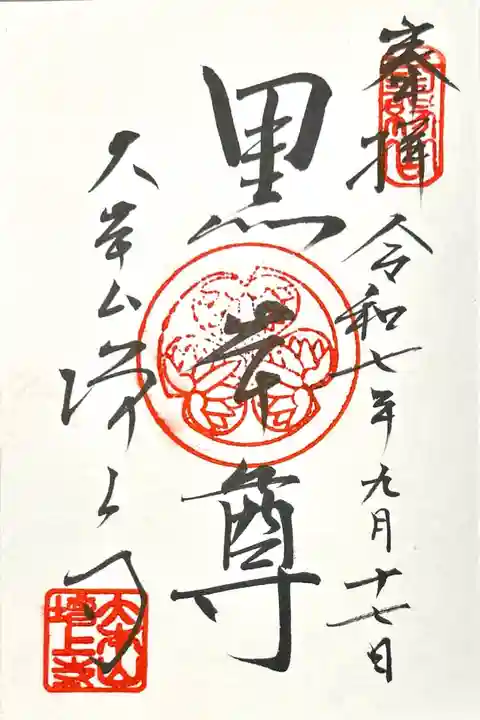 奉拝 令和七年九月十七日
黒本尊
大本山増上寺
大本山
増上寺